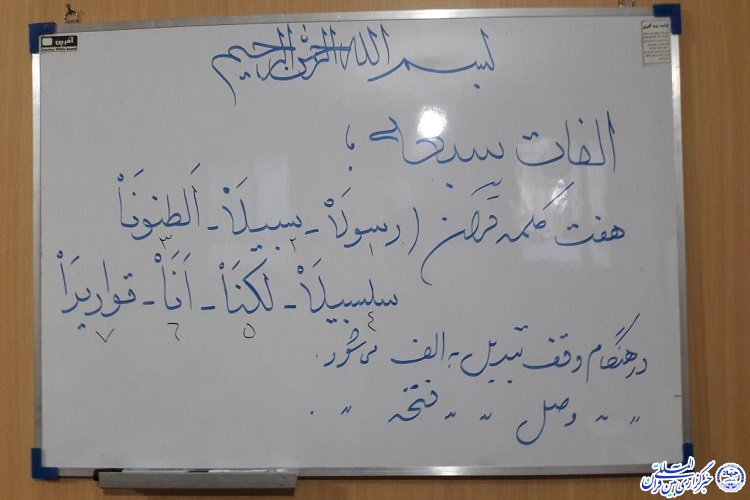 بسم الله الرحمن الرحیم
الفات سبعه :
هفت کلمه قرآن (رسولاْ - سبیلاْ - اَلظنوناْ
۱ ۲ ۳
سلسبیلاْ - لکناْ - اَناْ - قواریراْ
۴ ۵ ۶ ۷
در هنگام وقف تبدیل به الف می شود.
〃 〃 وصل 〃 〃 فتحه 〃 .
آفرین
خبرگزاری بین المللی قرآن